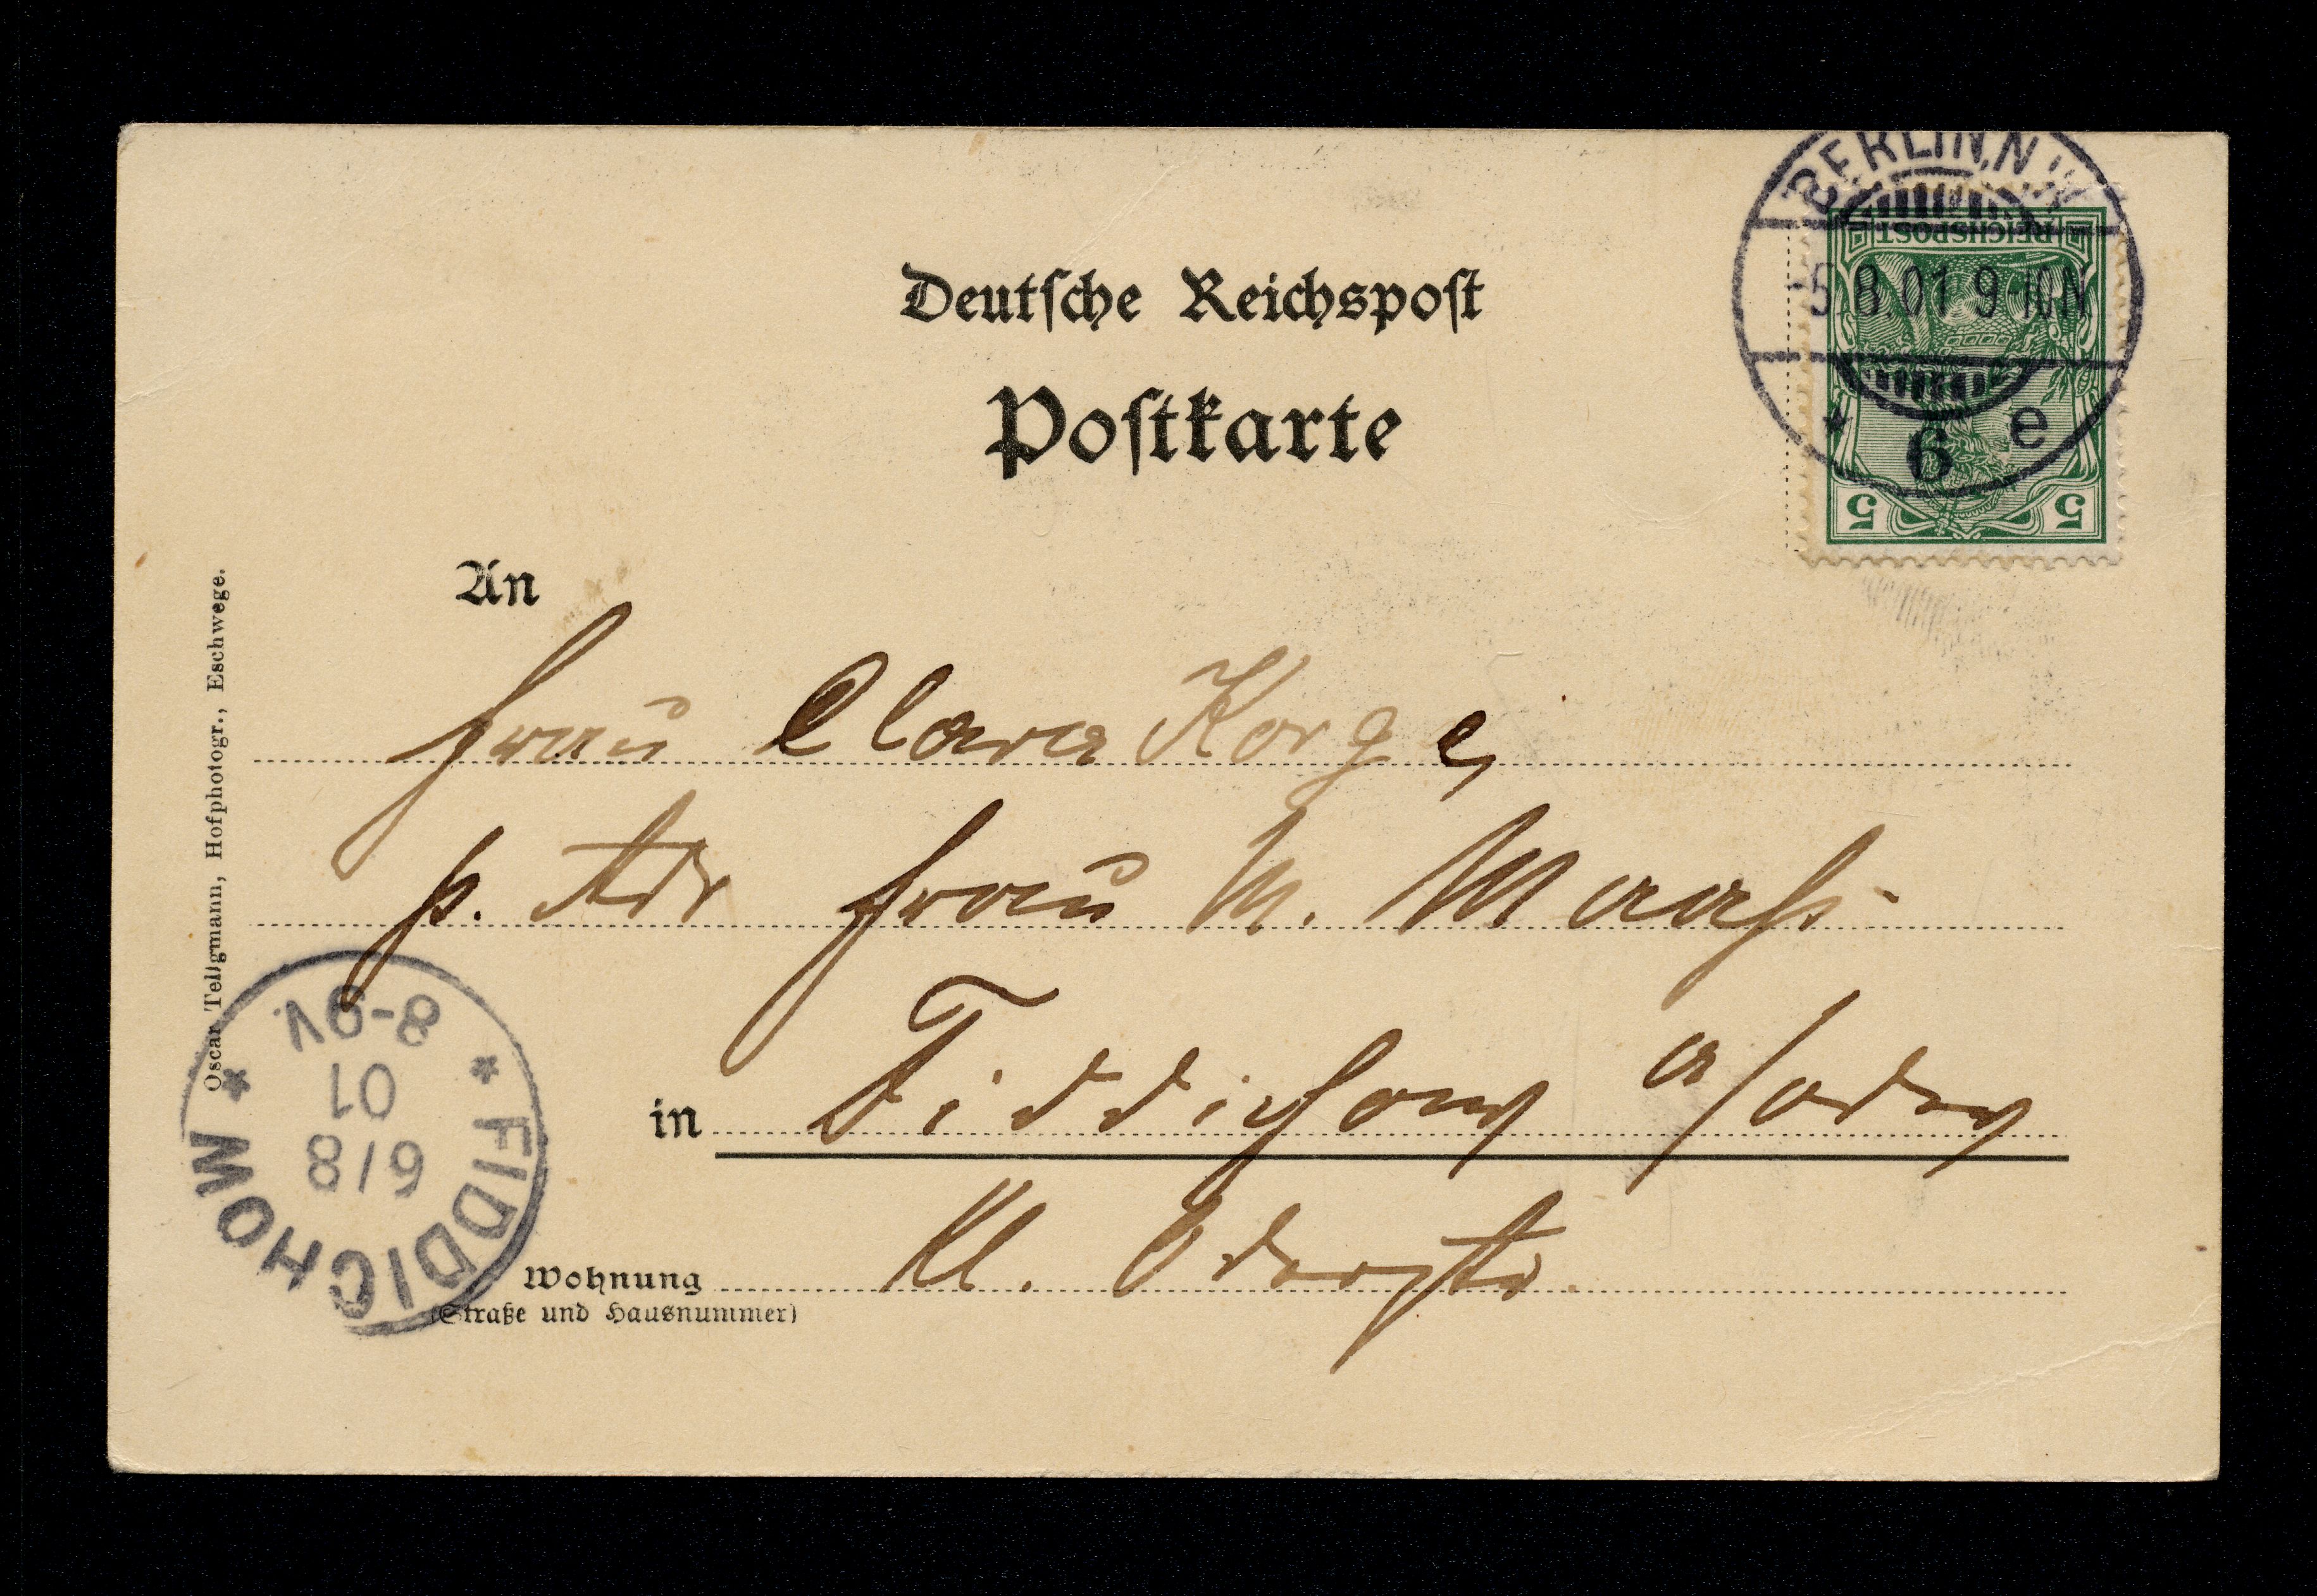 BERLIN, N.W.
REICHSPOST
-5.8.01 9-10N
* 6 e
5 5
Deutsche Reichspost
Postkarte
An
Frau Clara Korge,
p. Adr Frau M. Maaß
in Fiddichow a/Oder
Kl. Oderstr.
Wohnung
(Straße und Hausnummer)
Oscar Tellgmann, Hofphotogr., Eschwege.
* FIDDICHOW *
6/8
01
8-9V.